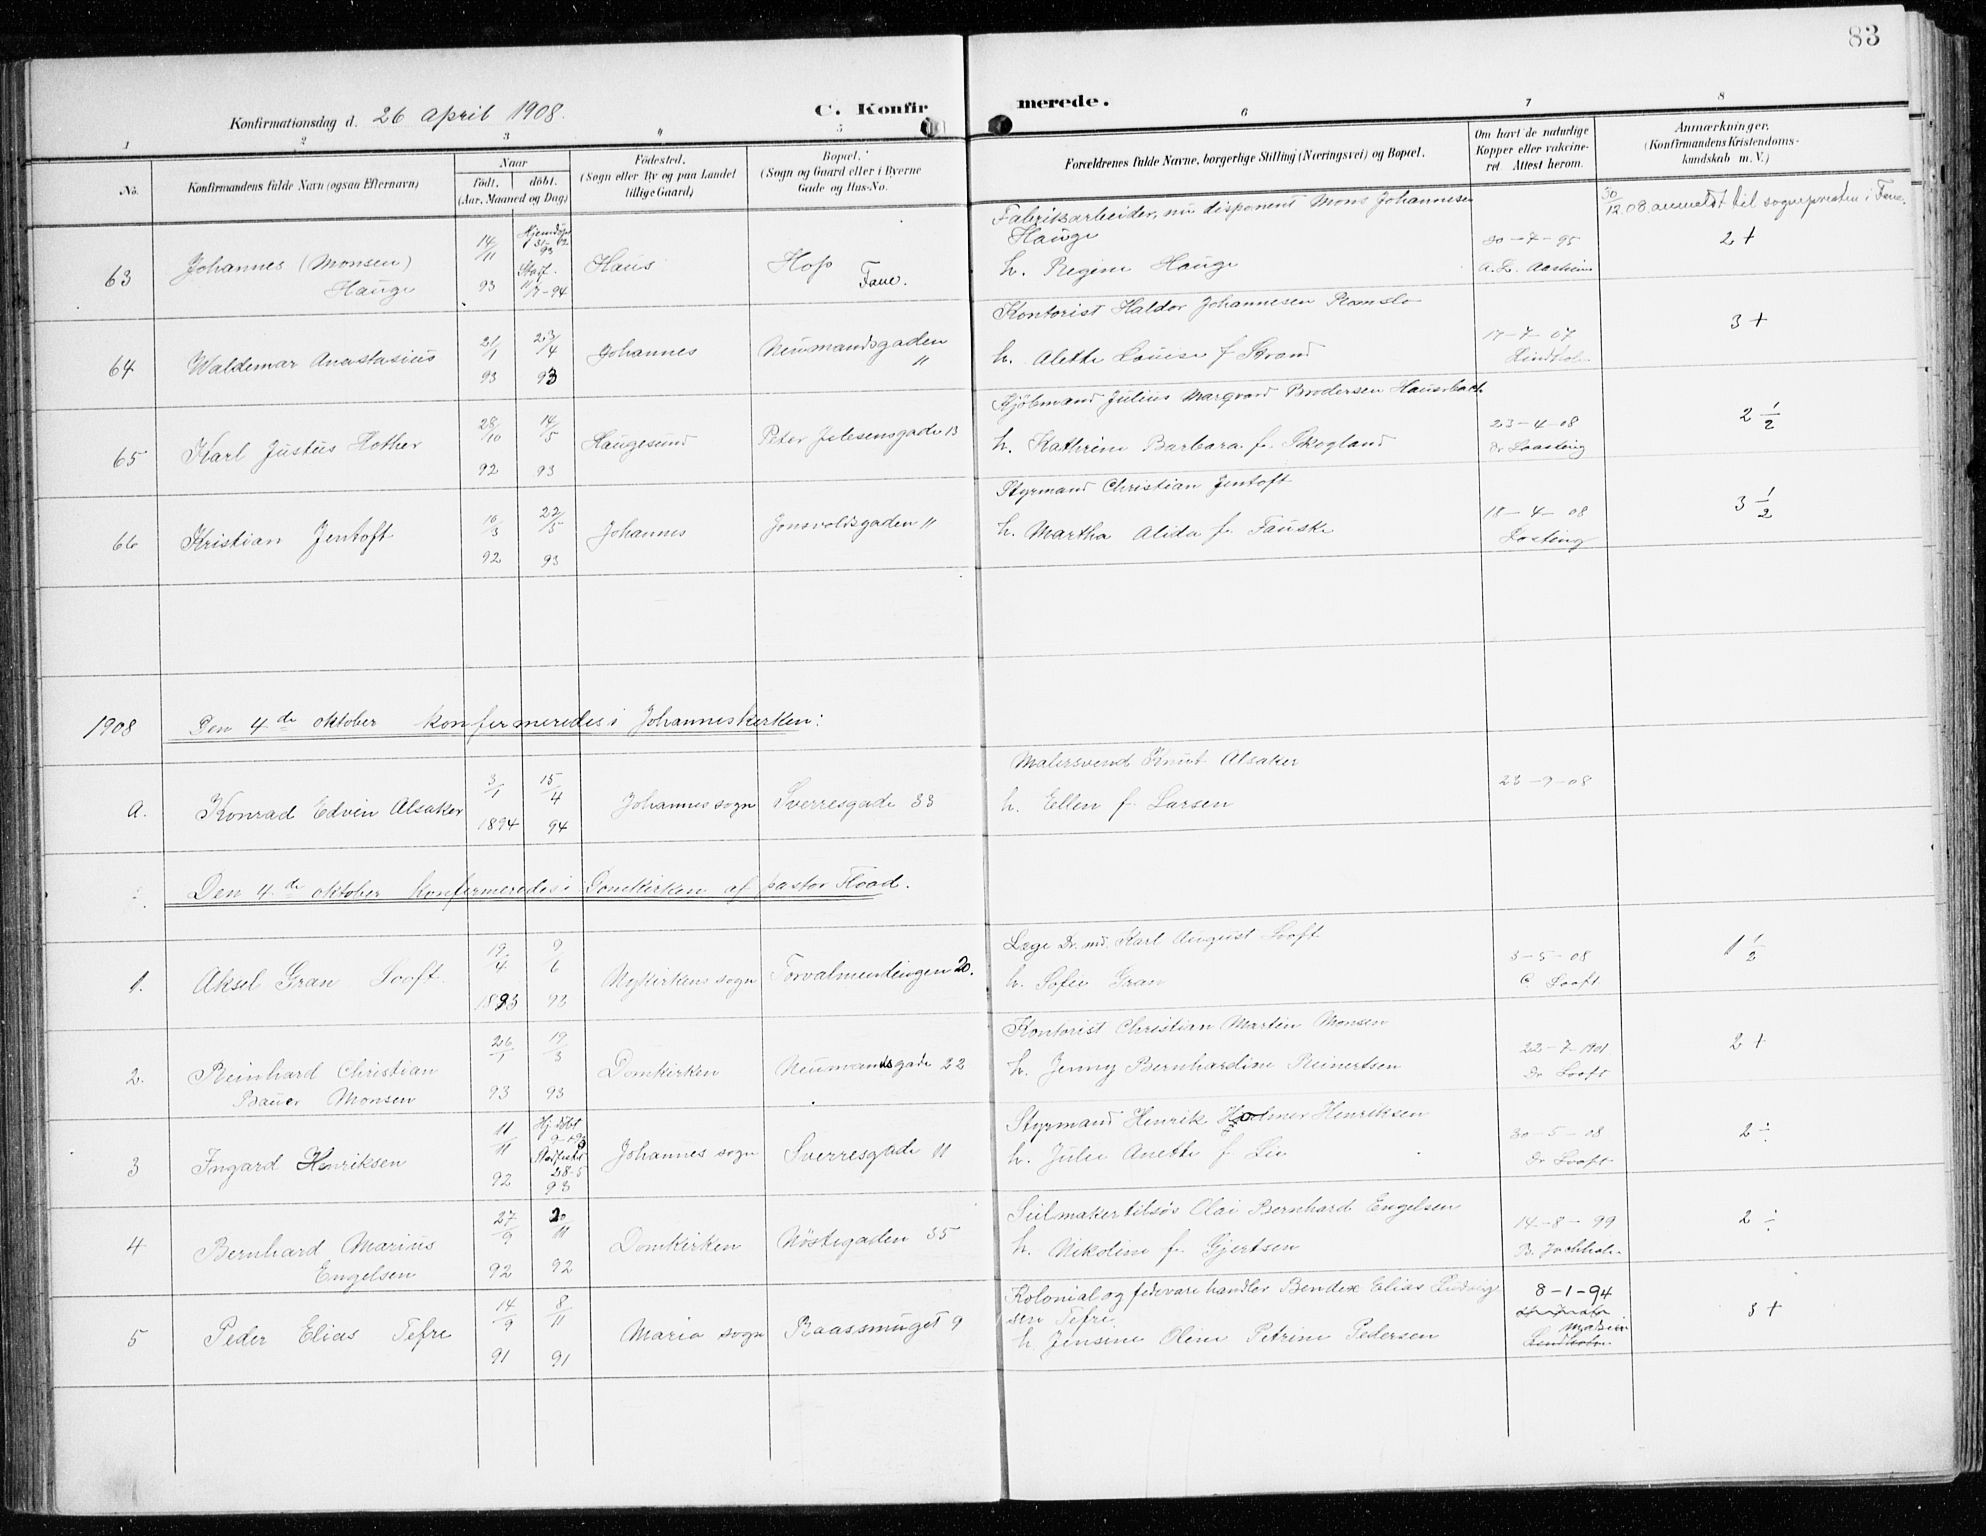 83
Konfirmationsdag d. 26 april 1908.
C. Konfirmerede.
1 2 3 4 5 6 7 8
No.
Konfirmandens fulde Navn (ogsaa Efternavn)
Naar
født. døbt.
(Aar, Maaned og Dag)
Fødested.
(Sogn eller By og paa Landet
tillige Gaard)
Bopæl.
(Sogn og Gaard eller i Byerne
Gade og Hus-No.
Forældrenes fulde Navne, borgerlige Stilling (Næringsvei) og Bopæl.
Om havt de naturlige
Kopper eller vakcineret. Attest herom.
Anmærkninger.
(Konfirmandens Kristendomskundskab m. V.)
63 Johannes (Monsen) Hauge 14/11 93 Hjemdøpt 31-12 93 Stadf. 11/7-94 Haus Hop Fane.
Fabrikarbeider, nu disponent Mons Johannesen Hauge
h. Regine Hauge
30-7-95
30/12.08 anmeldt til sognepresten i Fane.
2+
64 Waldemar Anastasius 21/1 93 23/4 93 Johannes Neumandsgaden 11
Kontorist Haldor Johannesen Romslo
h. Alette Louise f Strand
17-7-07
3+
65 Karl Justus Hother 28/10 92 14/5 93 Haugesund Peter Jebsensgade 13
Kjøbmand Julius Margvard Brodersen
h. Kathrine Barbara f. Skogland
23-4-08
2 1/2
66 Kristian Jentoft 10/3 92 22/5 93 Johannes Jonsvoldsgaden 11
Styrmand Christian Jentoft
h. Martha Alida f. Fauske
18-4-08
3 1/2
1908 Den 4de oktober konfermeredes i Johanneskerken:
a. Konrad Edvin Alsaker 3/1 1894 15/4 94 Johannes sogn Sverresgade 33
Malersvend Knut Alsaker
h. Ellen f. Larsen
23-9-08
Den 4de oktober konfermeredes i Domkirken af pastor Fload.
1. Aksel Gran Looft. 19/4 1893 9/6 93 Nykirkens sogn Torvalmendingen 20.
Læge Dr. md. Karl August Looft
h. Sofie Gran
3-5-08
C. Looft
1 1/2
2. Reinhard Christian Bauer Monsen 26/1 93 19/3 93 Domkirken Neumandsgade 22
Kontorist Christian Martin Monsen
h. Jenny Bernhardine Reinertsen
22-7-1901
Dr Looft
2+
3 Ingard Henriksen 11/11 92 Hj. døbt Stadfestet 28-5 93 Johannes sogn Sverresgade 11
Styrmand Henrik Holmer Henriksen
h. Julie Anette f. Lie
30-5-08
Dr Looft
2÷
4 Bernhard Marius Engelsen 27/9 92 20/11 92 Domkirken Nøstegaden 35
Seilmaker tilsøs Olai Bernhard Engelsen
h. Nikoline f. Gjertsen
14-8-99
2÷
5 Peder Elias Tefre 14/9 91 8/11 91 Maria sogn Raassmuget 9
Kolonial og fedevarehandler Bendex Elias Ludvigsen Tefre
h. Jensine Oline Petrine Pedersen
8-1-94
Madsen
Lindholm
3+